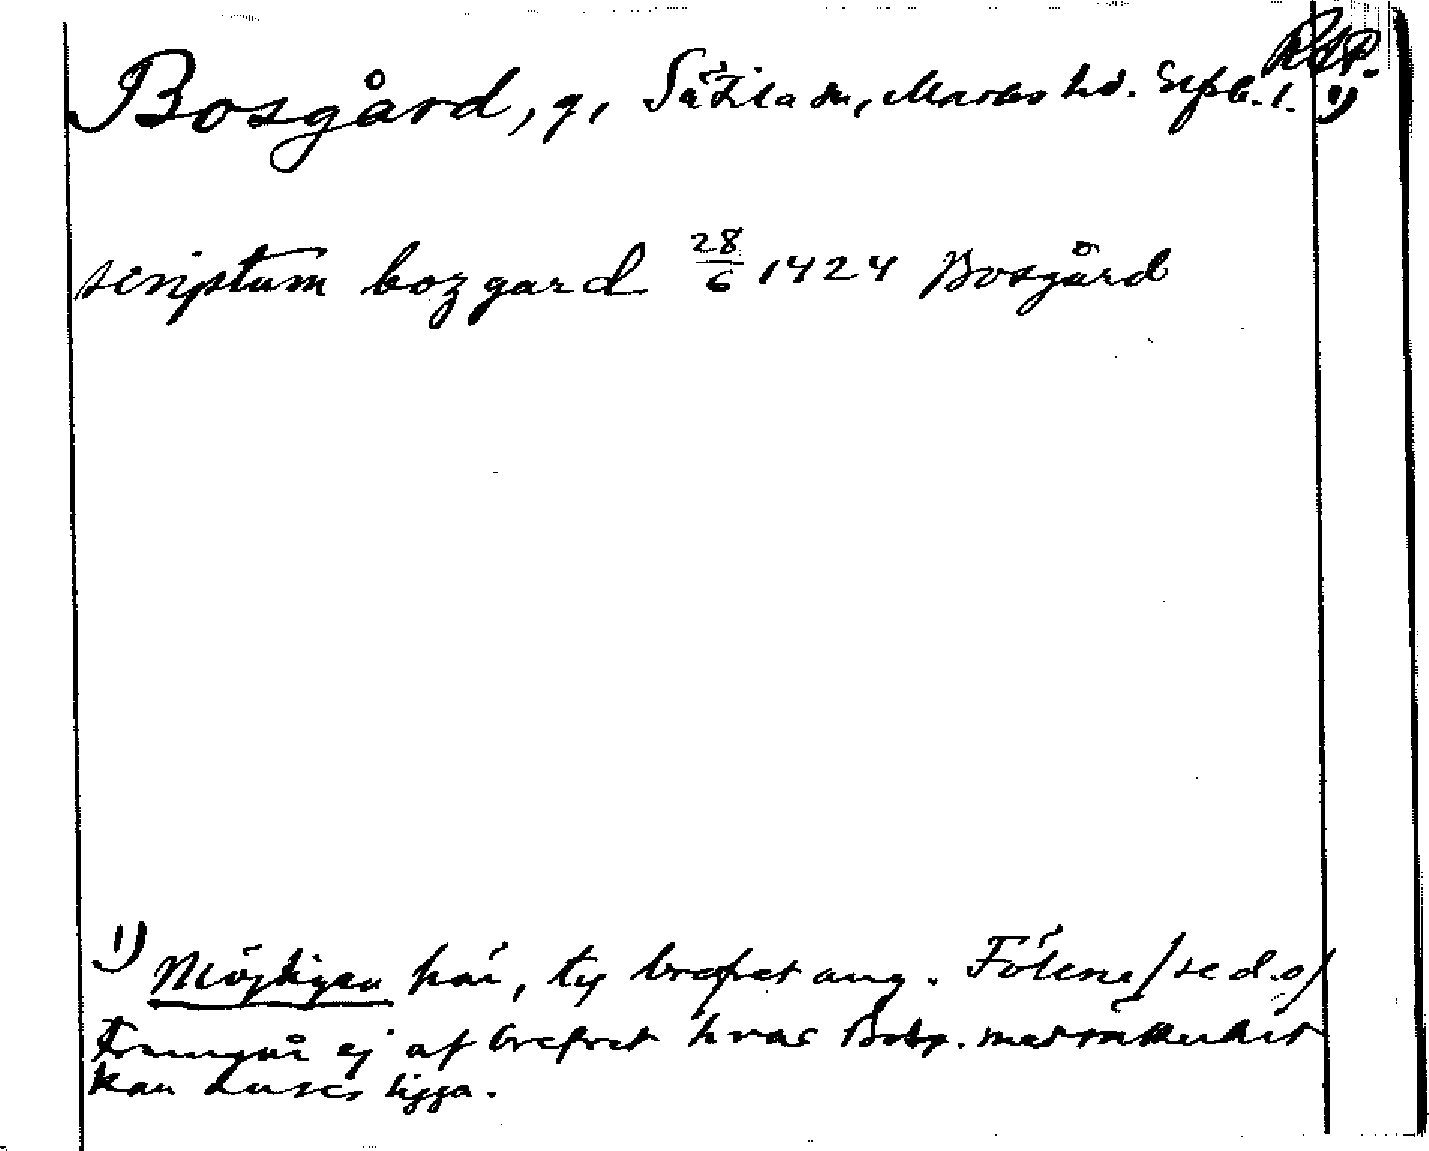 RAP.
Bosgård, g, Sätila sn, Marks hd. Elfsb. l. 1)
scriptum bozgard 28/6 1424 Bosgård
1) Möjligen här, ty brefvet ang. Fölene /se d.o/
Framgår ej af brefvet hvar Bosg. med säkerhet
kan anses ligga.